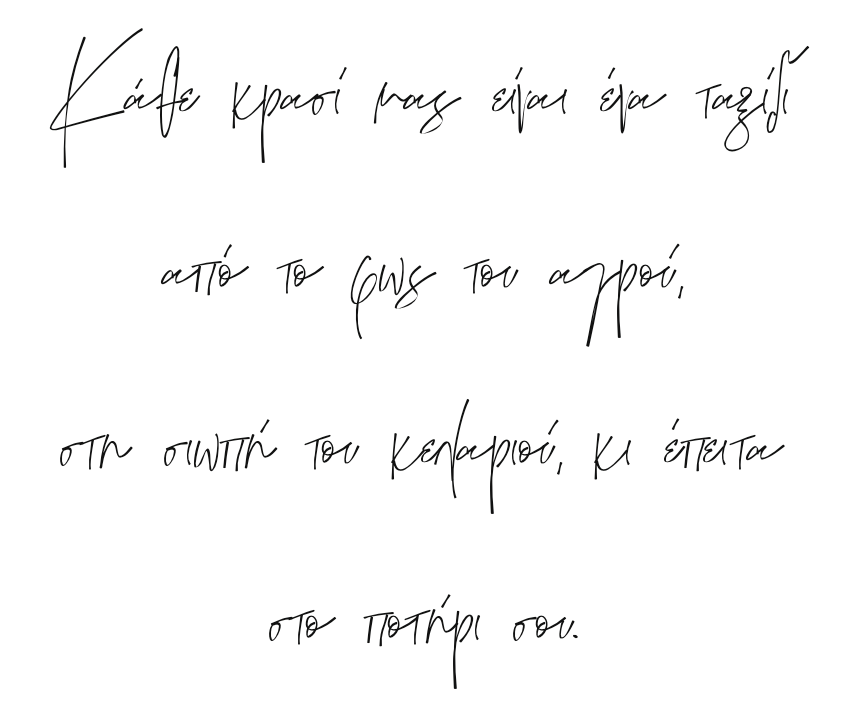 Κάθε κρασί μας είναι ένα ταξίδι
από το φως του αγρού,
στη σιωπή του κελαριού, κι έπειτα
στο ποτήρι σου.